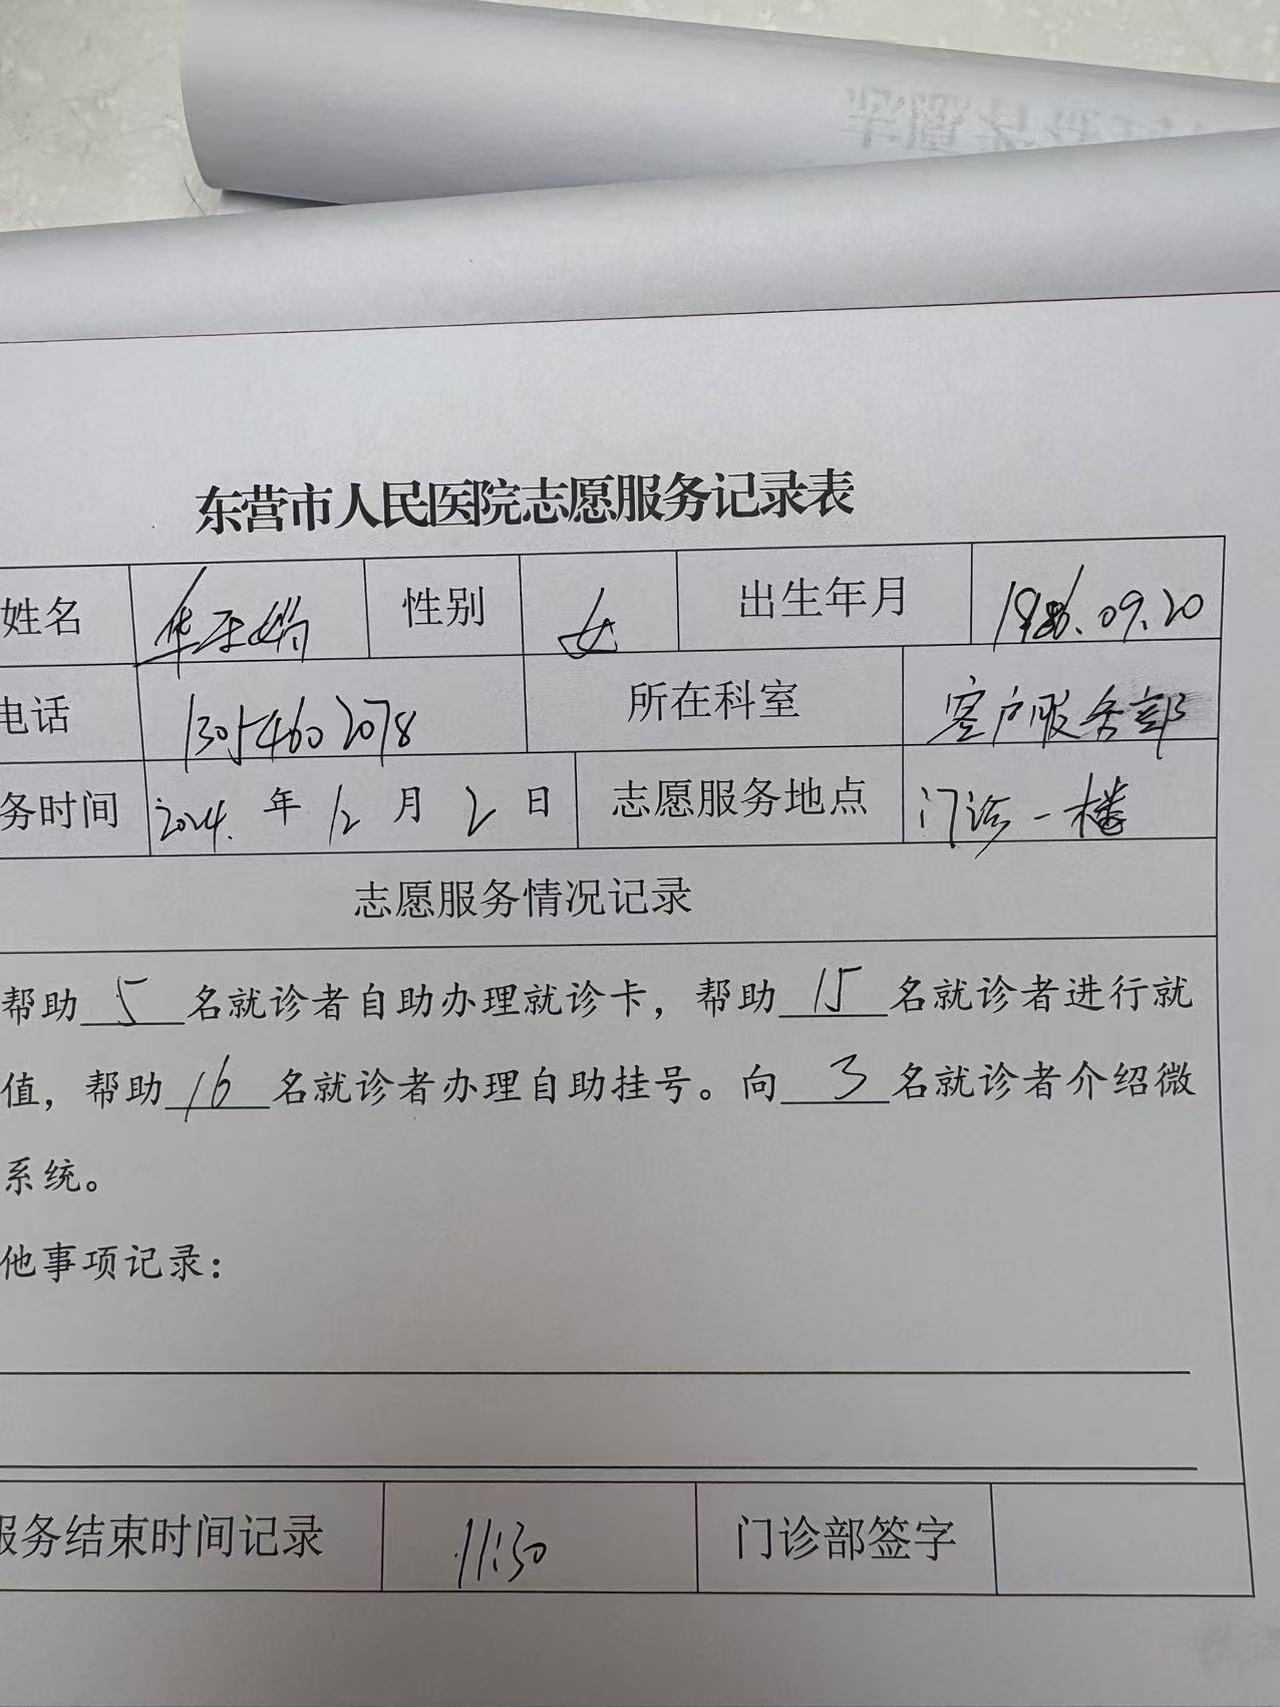 东营市人民医院志愿服务记录表
姓名 性别 女 出生年月 09.20
电话 13054602078 所在科室 客户服务部
务时间 2024. 年 12 月 2 日 志愿服务地点 门诊一楼
志愿服务情况记录
帮助 5 名就诊者自助办理就诊卡，帮助 15 名就诊者进行就
值，帮助 16 名就诊者办理自助挂号。向 3 名就诊者介绍微
系统。
他事项记录：
服务结束时间记录 11:30 门诊部签字